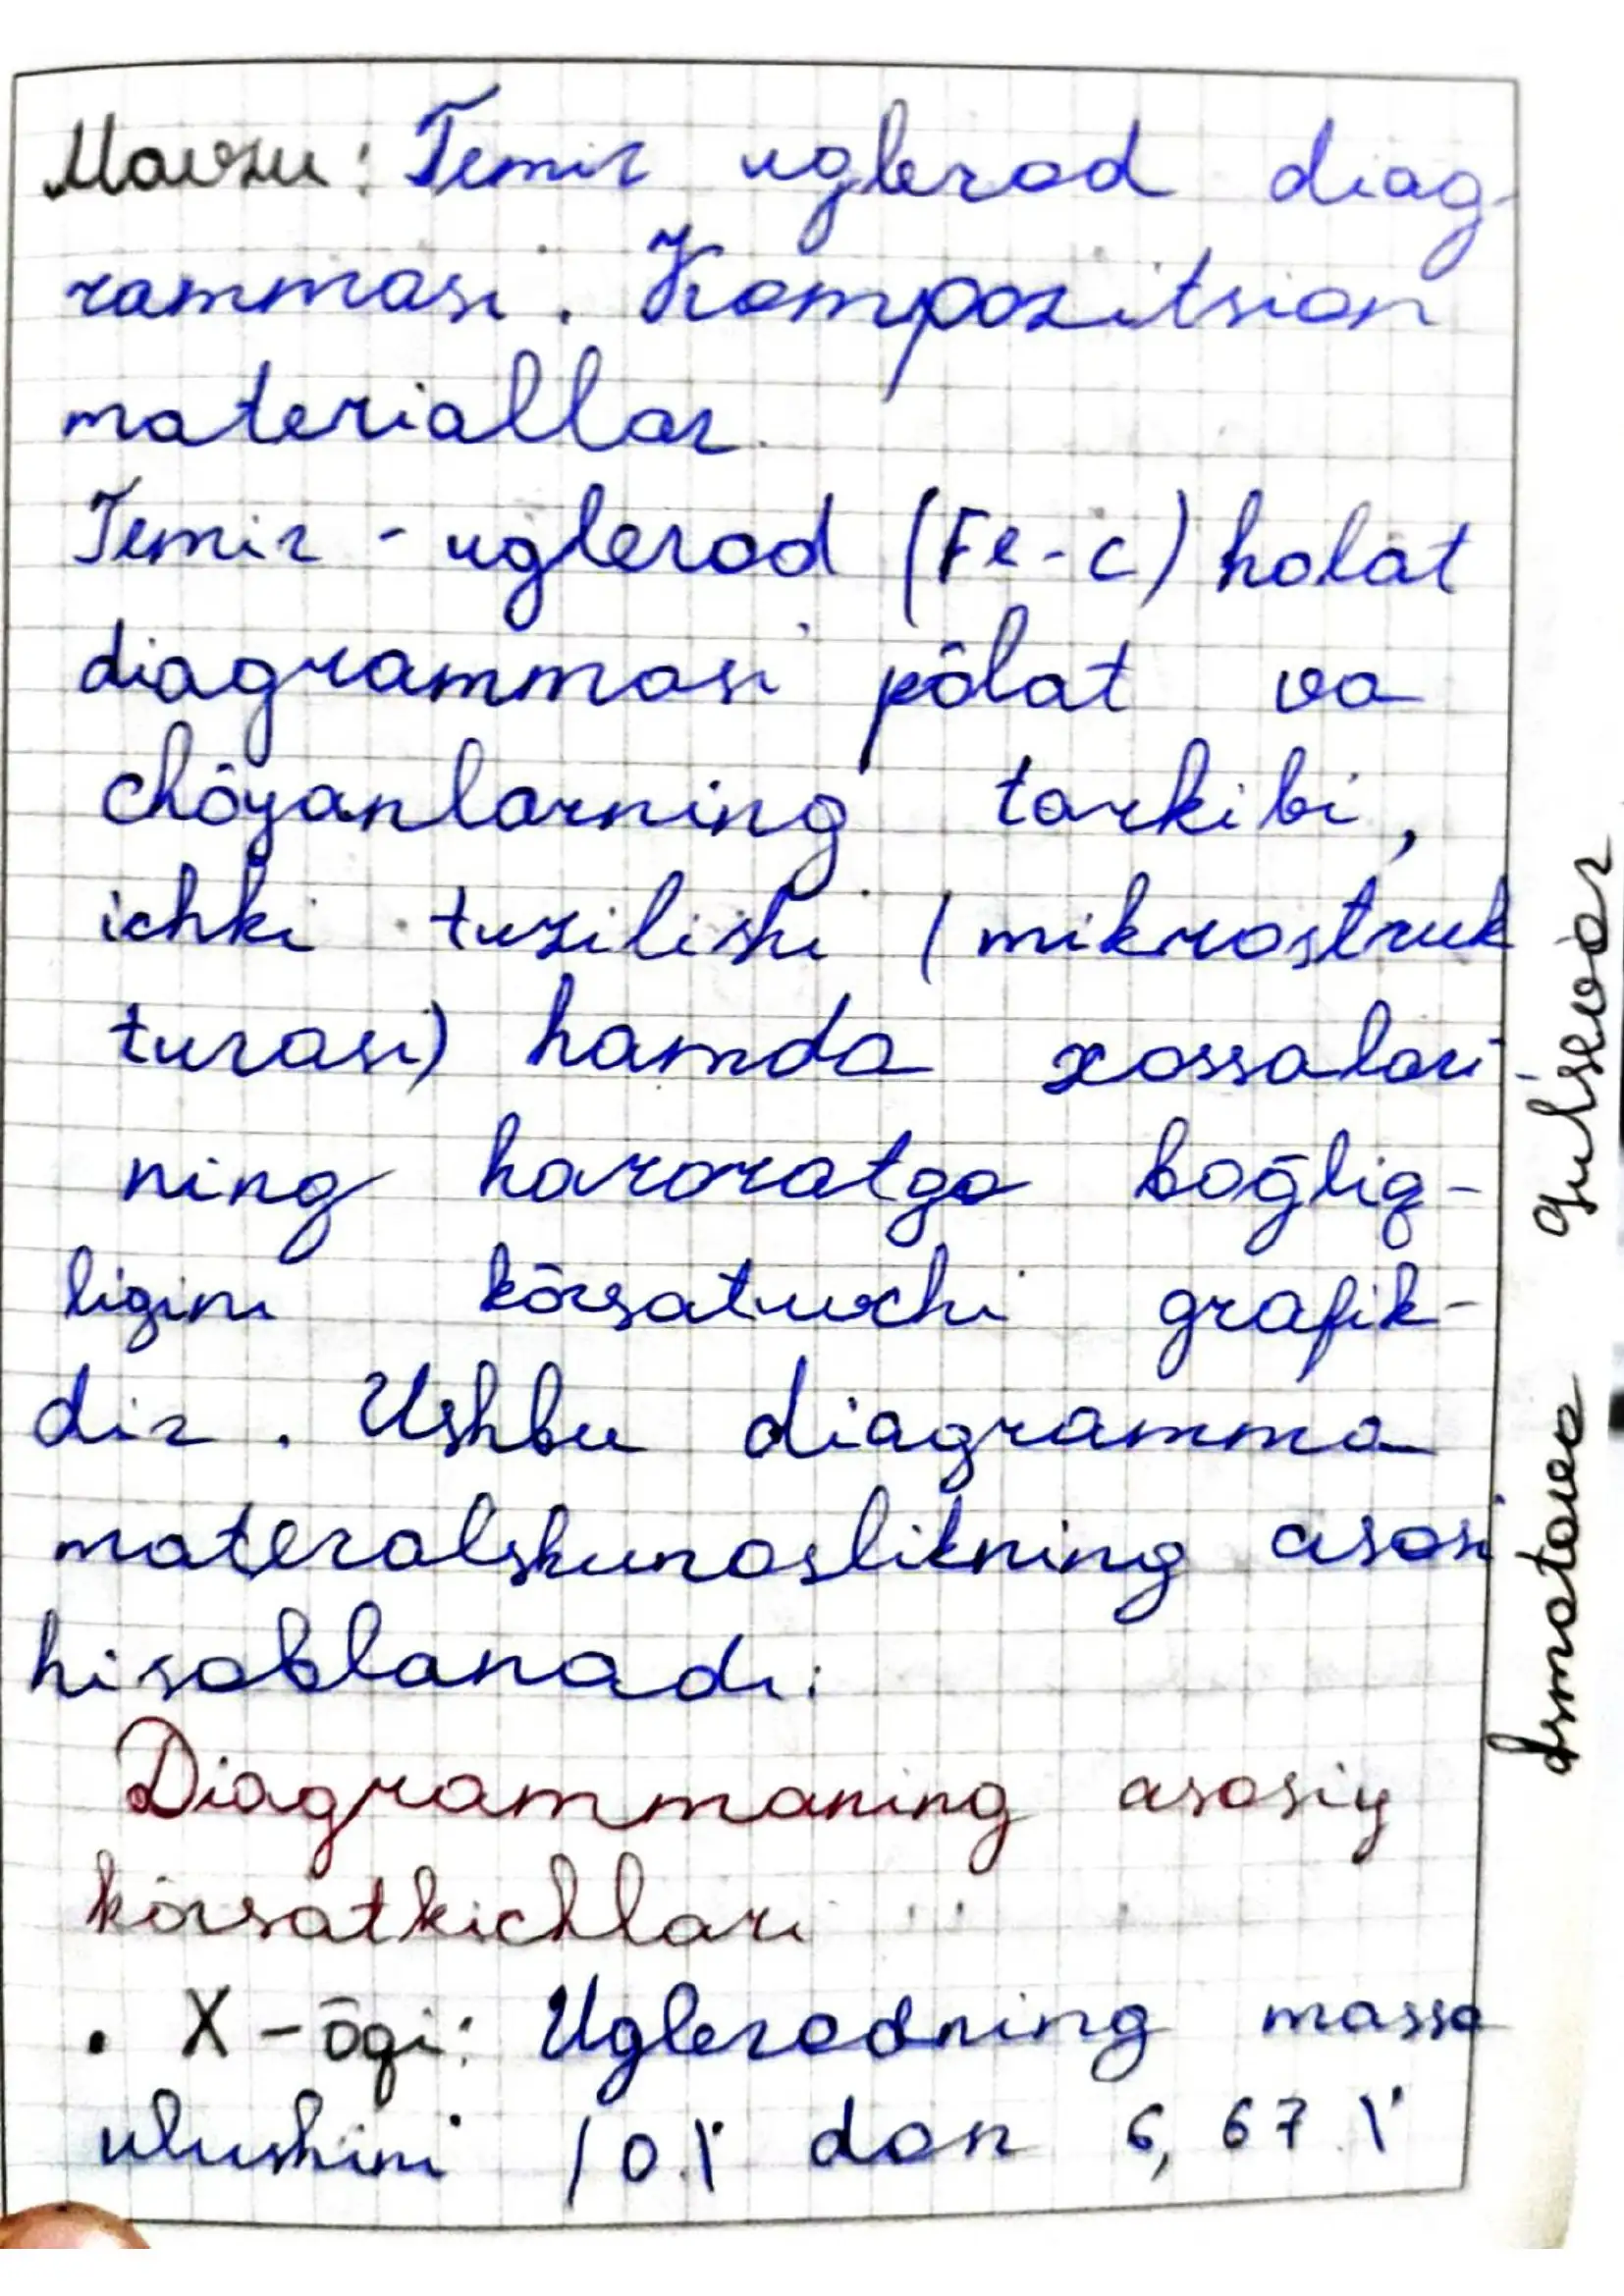 Mavzu: Temir uglerod diag-
rammasi. Kompozitsion
materiallar.
Temir - uglerod (Fe-C) holat
diagrammasi põlat va
chõyanlarning tarkibi,
ichki tuzilishi (mikrostruk
turasi) hamda xossalari-
ning haroratga boḡliq-
ligini kõrsatuvchi grafik-
dir. Ushbu diagramma
materalshunoslikning asosi
hisoblanadi:
Diagrammaning asosiy
kõrsatkichlari
• X-õqi: Uglerodning massa
ulushini (0% dan 6,67%
Ismatova Gulsevar